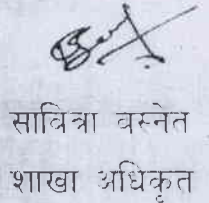 सावित्रा वस्नेत
शाखा अधिकृत